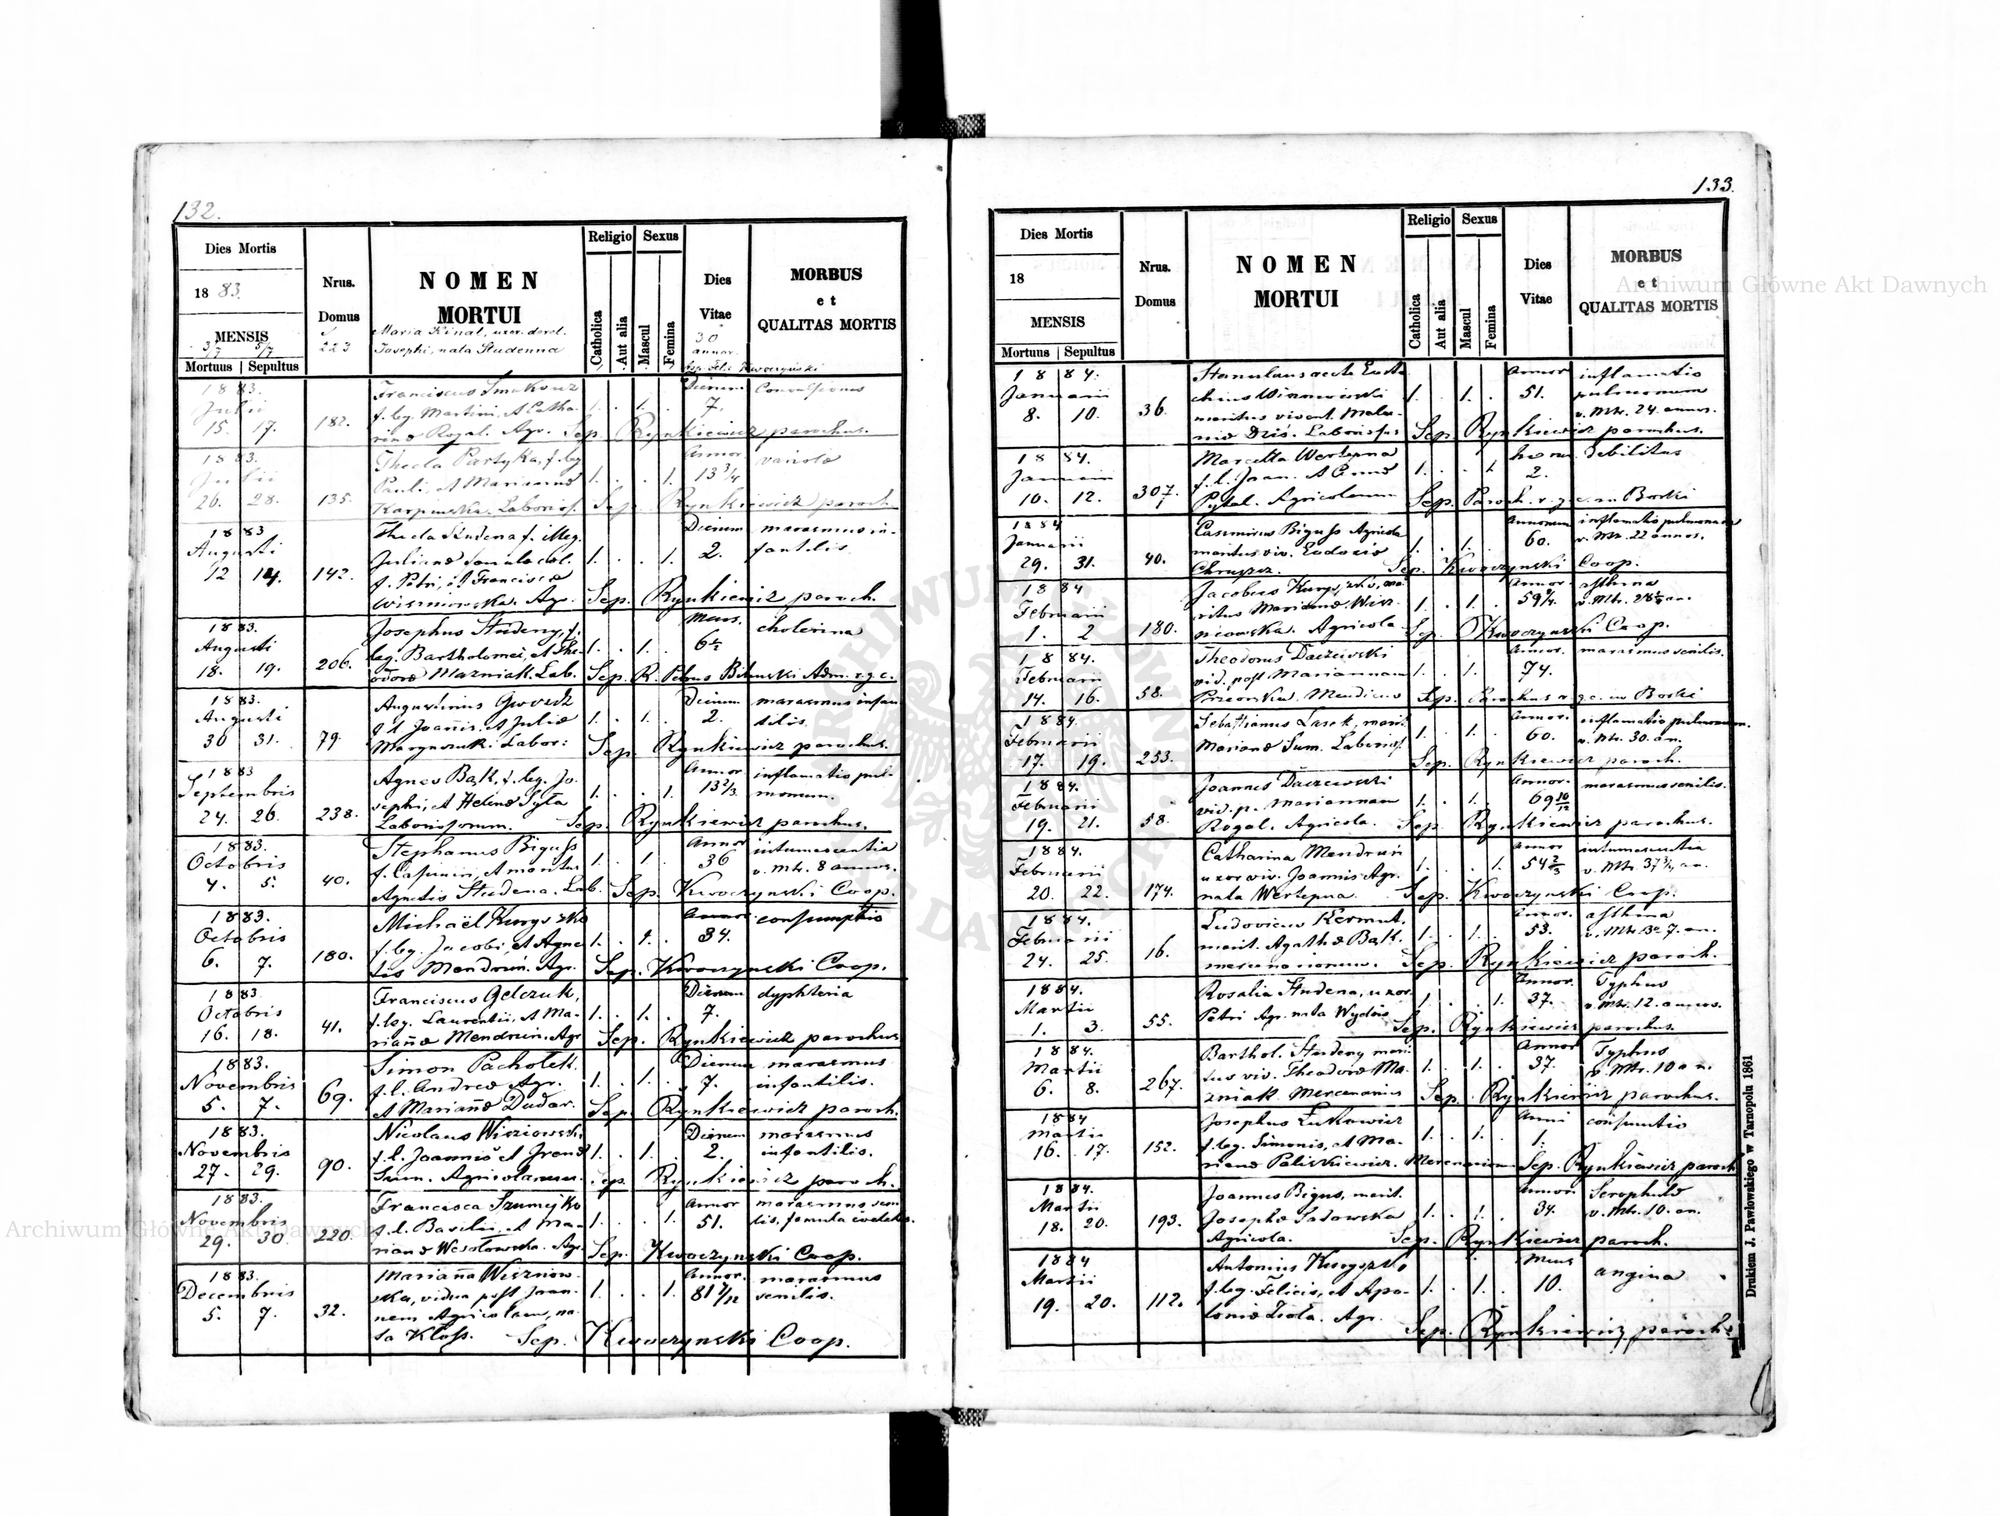 132.
Dies Mortis
18 83.
MENSIS
3/7 5/7
Mortuus | Sepultus
Nrus.
Domus
223
NOMEN
MORTUI
Maria Kinal, uxor derel.
Josephi, nata Studenna
Religio
Catholica
Aut alia
Sexus
Mascul
Femina
Dies
Vitae
30
annor.
MORBUS
et
QUALITAS MORTIS
Sep. Felix Kwoczyński
1883.
Julii
15. 17.
182.
Franciscus
f. leg. Martini, et Catha-
rinae Rogal. Agr. Sep. Rynkiewicz parochus.
1. 1.
Dierum
7.
Convulsiones
1883.
Julii
26. 28.
135.
Thecla Partyka, f. leg.
Pauli, et Mariannae
Karpinska. Laborios. Sep. Rynkiewicz paroch.
1. 1.
Annor
13 3/4
variola
1883
Augusti
12 14.
142.
Thecla Studena f. illeg.
Julianae
f. Petri, et Franciscae
Wisniowska. Agr. Sep. Rynkiewicz paroch.
1. 1.
Dierum
2.
marasmus in-
fantilis.
1883.
Augusti
18. 19.
206.
Josephus Studeny, f.
leg. Bartholomei, et The-
odorae Mazniak. Lab. Sep. R. Petrus Adm. r.g.c.
1. 1.
Mens.
6 1/2
cholerina
1883.
Augusti
30 31.
79.
Augustinus
f. l. Joannis, et Juliae
Labor: Sep. Rynkiewicz parochus.
1. 1.
Dierum
2.
marasmus infan
tilis.
1883
Septembris
24. 26.
238.
Agnes Bąk, f. leg. Jo-
sephi, et Helenae Syta
Laboriosorum. Sep. Rynkiewicz parochus.
1. 1.
Annor
13 2/3.
inflamatio pul-
monum.
1883.
Octobris
4. 5.
40.
Stephanus Biguss
f. Casimiri, et maritus
Agnetis Studena. Lab. Sep. Kwoczynski Coop.
1. 1.
Annor
36
intumescentia
v. Mtr. 8 annos.
1883.
Octobris
6. 7.
180.
Michaël Kurgyszko
f. leg. Jacobi, et Agne-
tis Mendrun. Agr. Sep. Kwoczynski Coop.
1. 1.
Annor
34.
consumptio
1883
Octobris
16. 18.
41.
Franciscus Gelczuk,
f. leg. Laurentii, et Ma-
riannae Mendrun. Agr Sep. Rynkiewicz parochus
1. 1.
Dierum
7.
dyphteria
1883.
Novembris
5. 7.
69.
Simon Pacholek.
f. l. Andreae Agr.
et Mariannae Dudar. Sep. Rynkiewicz paroch.
1. 1.
Dierum
7.
marasmus
infantilis.
1883.
Novembris
27. 29.
90.
Nicolaus
f. l. Joannis et Irenae
Sum. Agricolarum. Sep. Rynkiewicz paroch.
1. 1.
Dierum
2.
marasmus
infantilis.
1883.
Novembris
29. 30.
220.
Francisca Szumejko
f. l. Basilii, et Ma-
riannae Wesołowska. Agr. Sep. Kwoczynski Coop.
1. 1.
Annor
51.
marasmus seni-
lis, famula
1883.
Decembris
5. 7.
32.
Marianna Wisniow-
ska, vidua post Joan-
nem Agricolam, na-
ta Kloss. Sep. Kwoczynski Coop.
1. 1.
Annor.
81 7/12
marasmus
senilis.
133.
Dies Mortis
18
MENSIS
Mortuus | Sepultus
Nrus.
Domus
NOMEN
MORTUI
Religio
Catholica
Aut alia
Sexus
Mascul
Femina
Dies
Vitae
MORBUS
et
QUALITAS MORTIS
1884.
Januarii
8. 10.
36.
Stanislaus
Winniwiski
maritus vivent.
Sep. Rynkiewicz parochus.
1. 1.
Annor
51.
inflamatio
pulmonum
v. Mtr. 24. annos.
1884.
Januarii
10. 12.
307.
Marcella Wertepna
f. l. Joan. et Annae
Pytel. Agricolarum Sep. Paroch. r. g. c. in Borki
1. 1
horar.
2.
debilitas
1884
Januarii
29. 31.
40.
Casimirus Biguss Agricola
maritus viv. Eudoxiae
Sep. Kwoczynski Coop.
1. 1.
Annorum
60.
inflamatio pulmonum
v. Mtr. 22 annos.
1884
Februarii
1. 2
180.
Jacobus Kurgyszko, ma-
ritus Mariannae
Agricola Sep. Kwoczynski Coop.
1. 1.
Annor.
asthma
1884.
Februarii
14. 16.
58.
Theodorus Daczewski
vid. post Mariannam
Mendicus Sep. Parochus r. g. c. in Borki
1. 1.
Annor.
74.
marasmus senilis.
1884.
Februarii
17. 19.
253.
Sebastianus Lasek, marit.
Mariannae Sum. Laborios.
Sep. Rynkiewicz paroch.
1. 1.
Annor.
60.
inflamatio pulmonum.
v. Mtr. 30. an.
1884.
Februarii
19. 21.
58.
Joannes Daczewski
vid. p. Mariannam
Rogal. Agricola. Sep. Rynkiewicz parochus.
1. 1.
Annor.
69 10/12
marasmus senilis.
1884.
Februarii
20. 22.
174.
Catharina Mendrun
uxor viv. Joannis Agr.
nata Wertepna. Sep. Kwoczynski Coop.
1. 1.
Annor
54 2/3
intumescentia
v. Mtr. 37 3/4 an.
1884.
Februarii
24. 25.
16.
Ludovicus Kermut,
marit. Agathae Bąk.
mercenariorum. Sep. Rynkiewicz paroch.
1. 1.
Annor.
53.
asthma
1884.
Martii
1. 3.
55.
Rosalia Studena, uxor
Petri Agr. nata
Sep. Rynkiewicz parochus.
1. 1.
Annor.
37.
Typhus
v. Mtr. 12. annos.
1884.
Martii
6. 8.
267.
Barthol. Studeny mari-
tus viv. Theodorae Ma-
zniak Mercenarius Sep. Rynkiewicz parochus.
1. 1.
Annor
37.
Typhus
v. Mtr. 10 an.
1884
Martii
16. 17.
152.
Josephus Lukowicz
f. leg. Simonis, et Ma-
riannae Paliszkiewicz. Mercenariorum Sep. Rynkiewicz paroch
1. 1.
Anni
1.
1884.
Martii
18. 20.
193.
Joannes Bigus, marit.
Josephae Sadowska
Agricola. Sep. Rynkiewicz paroch.
1. 1.
Annor
34.
Scrophulae
v. Mtr. 10. an.
1884
Martii
19. 20.
112.
Antonius Kurgyszko
f. leg. Felicis, et Apo-
loniae Ziola. Agr.
Sep. Rynkiewicz, paroch.
1. 1.
Mens
10.
angina
Drukiem J. Pawłowskiego w Tarnopolu 1861
Archiwum Główne Akt Dawnych
Archiwum Główne Akt Dawnych
ARCHIWUM GŁÓWNE AKT DAWNYCH